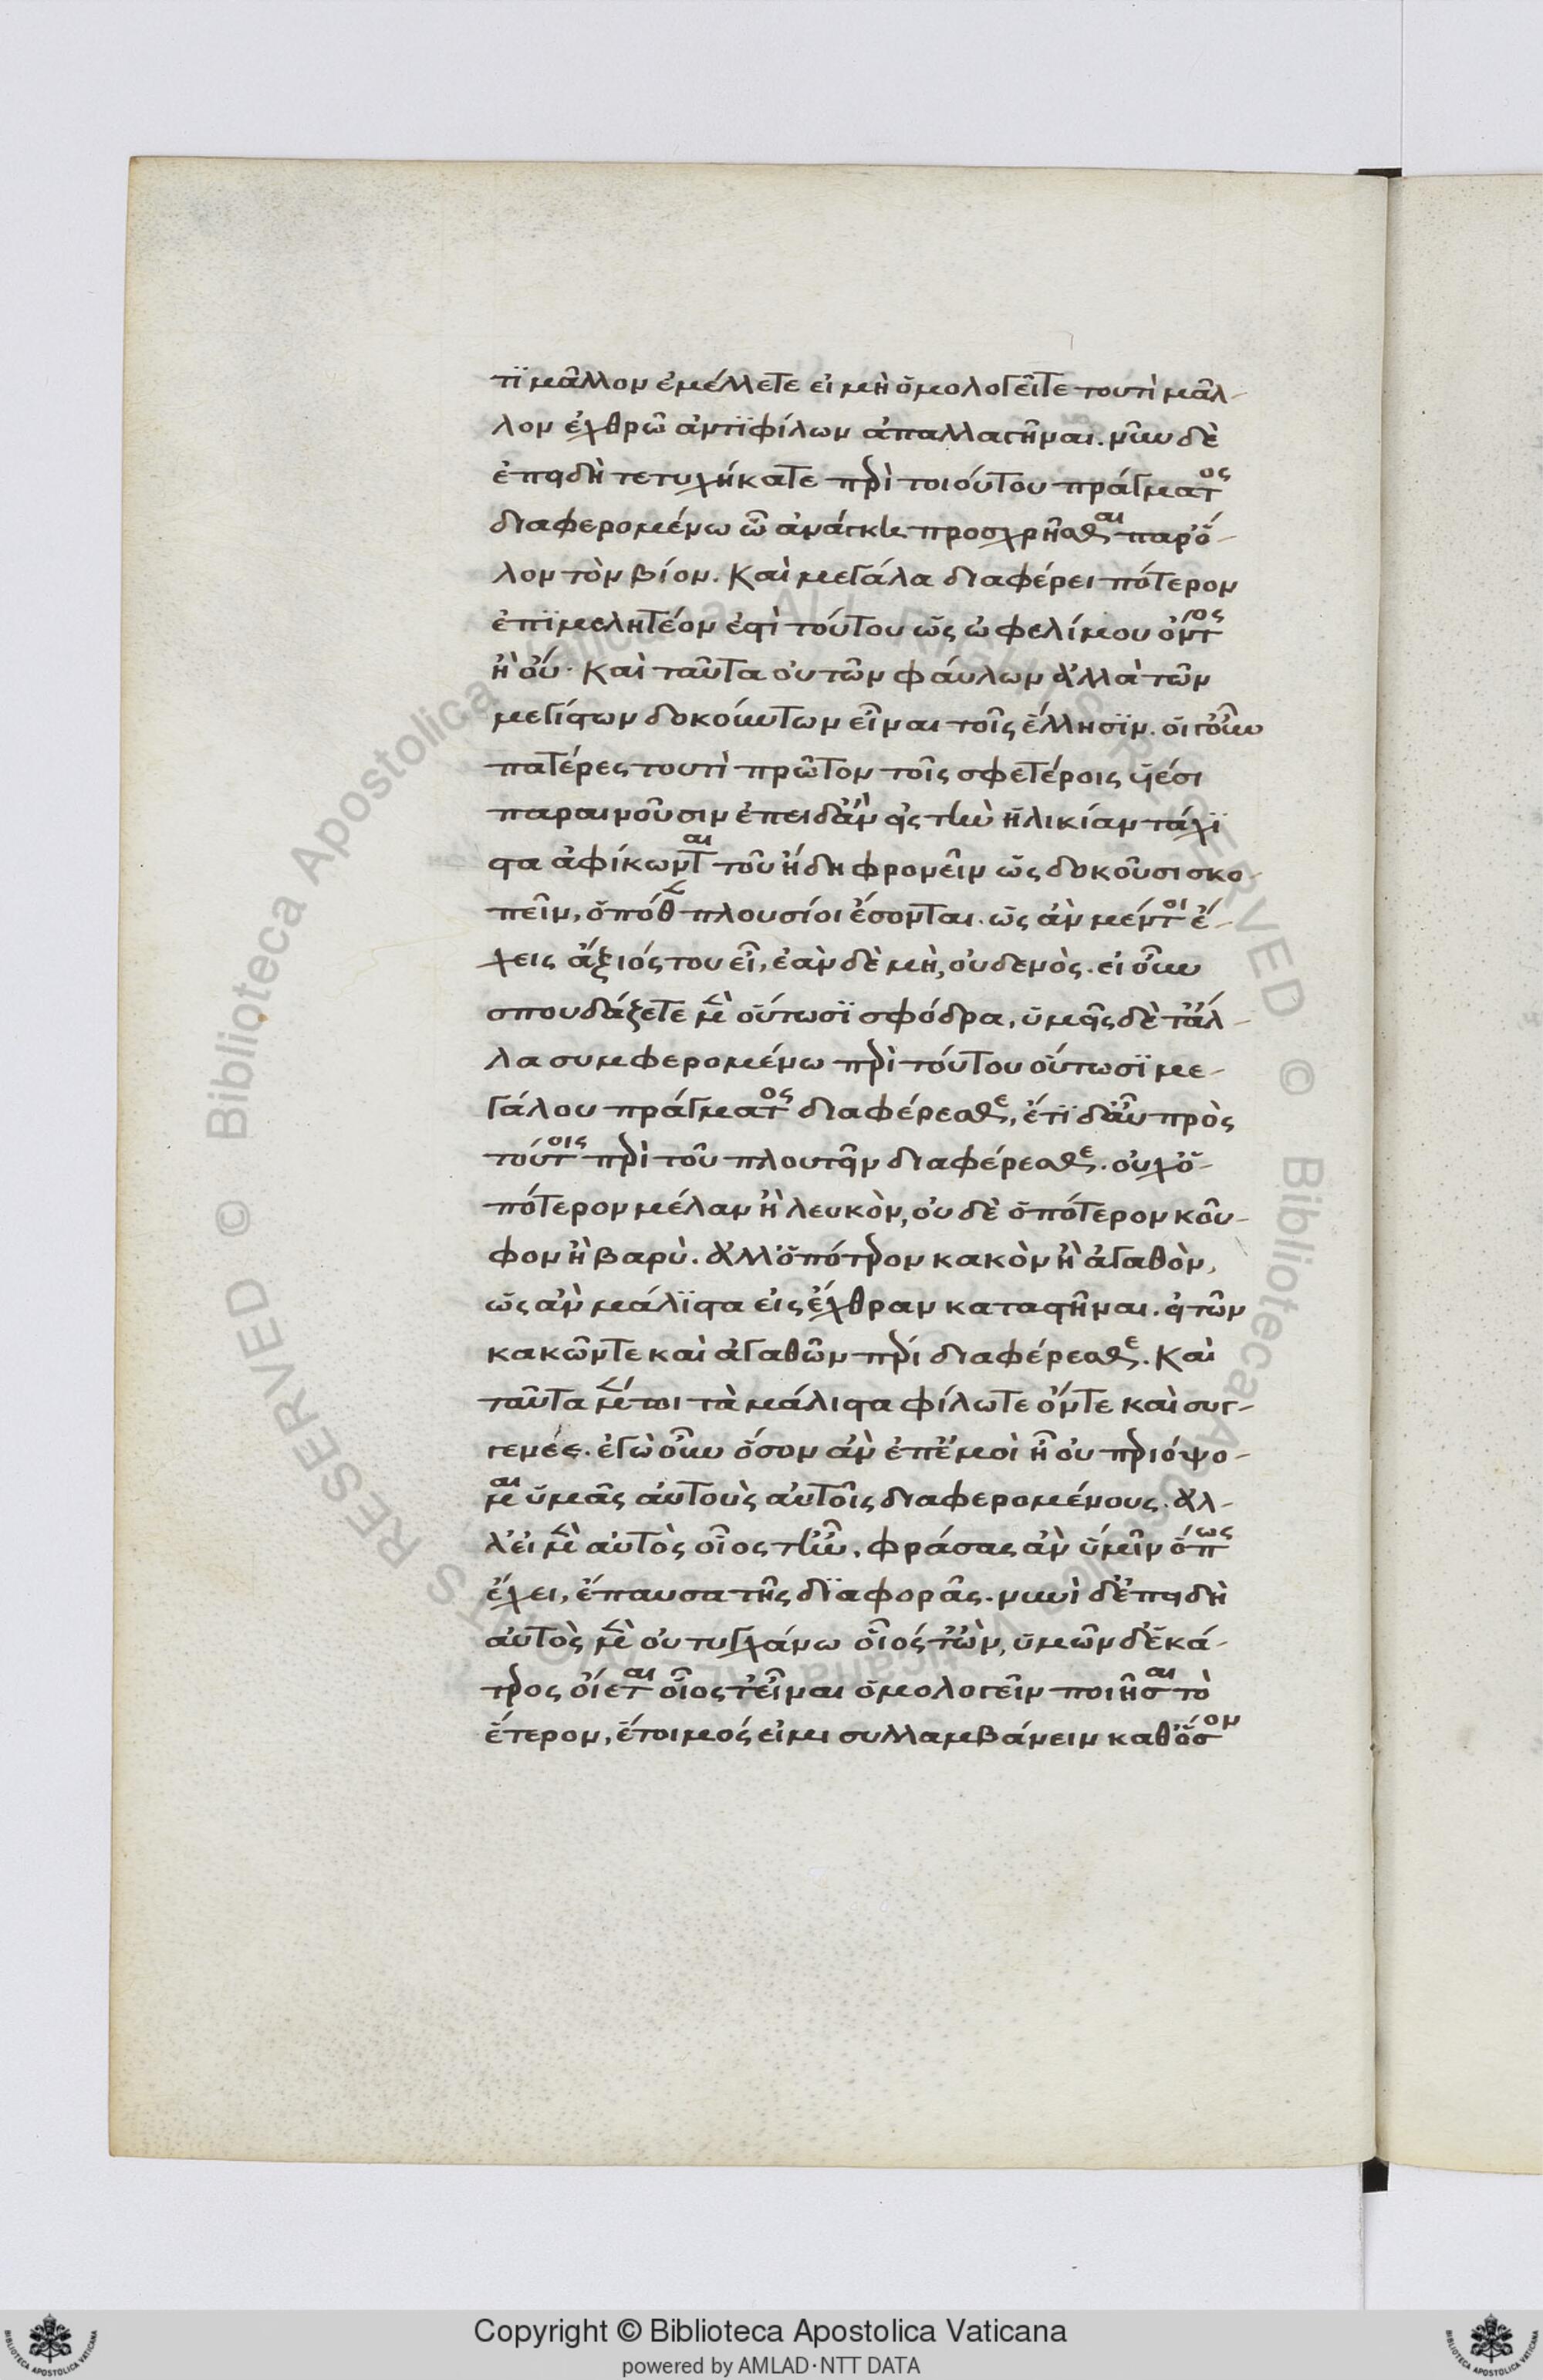 τϊ μᾶλλον ἐμέλλετε εἰ μὴ ὁμολογεῖτε τουτὶ μᾶλ-
λον ἐχθρῶ ἀντϊφίλων ἀπαλλαγῆναι. νῦν δὲ
ἐπειδὴ τετυχήκατε περὶ τοιούτου πράγματος
διαφερομένω ὧ ἀνάγκη προσχρῆσθαι παρ' ὅ-
λον τὸν βίον. Καὶ μεγάλα διαφέρει πότερον
ἐπϊμελητέον ἐστὶ τούτου ὡς ὠφελίμου ὄντος
ἢ οὔ. Καὶ ταῦτα οὐ τῶν φαύλων ἀλλὰ τῶν
μεγίστων δοκούντων εἶναι τοῖς ἕλλησϊν. οἱ γοῦν
πατέρες τουτὶ πρῶτον τοῖς σφετέροις ὑέσι
παραινοῦσιν ἐπειδἂν εἰς τὴν ἡλικίαν τάχϊ
στα ἀφίκωνται τοῦ ἤδη φρονεῖν ὡς δοκοῦσι σκο-
πεῖν, ὁπόθεν πλουσίοι ἔσονται. ὡς ἀν μέν τοι ἔ-
χεις ἄξιός του εἶ, ἐὰν δὲ μὴ, οὐδενὸς. εἰ οὖν
σπουδάζετε μὲν οὕτωσϊ σφόδρα, ὑμεῖς δὲ τἆλ-
λα συμφερομένω περὶ τούτου οὕτωσϊ με-
γάλου πράγματος διαφέρεσθε, ἔτϊ δἂυ πρὸς
τούτοις περὶ τοῦ πλουτεῖν διαφέρεσθε. οὐχ ὁ-
πότερον μέλαν ἢ λευκὸν, οὐδὲ ὁπότερον κοῦ-
φον ἢ βαρὺ. ἀλλ' ὁπότερον κακὸν ἢ ἀγαθὸν,
ὡς ἀν μάλϊστα εἰς ἔχθραν καταστῆναι. εἰ τῶν
κακῶν τε καὶ ἀγαθῶν περί διαφέρεσθε. Καὶ
ταῦτα μέντοι τὰ μάλιστα φίλω τε ὄντε καὶ συγ-
γενές. ἐγὼ οὖν ὅσον ἀν ἐπ' ἐμοὶ ἦ οὐ περιόψο-
μαι ὑμᾶς αὐτοὺς αὐτοῖς διαφερομένους. ἀλ-
λ' εἰ μὲν αὐτὸς οἷος τ' ἦν, φράσας ἀν ὑμῖν ὅπως
ἔχει, ἔπαυσα τῆς δϊαφορᾶς. νυνὶ δ' ἐπειδὴ
αὐτὸς μὲν οὐ τυγχάνω οἷός τ' ὢν, ὑμῶν δ' ἑκά-
τερος οἴεται οἷος τ' εἶναι ὁμολογεῖν ποιῆσαι τὸ
ἕτερον, ἕτοιμός εἰμι συλλαμβάνειν καθ' ὅσον
Copyright © Biblioteca Apostolica Vaticana
powered by AMLAD·NTT DATA